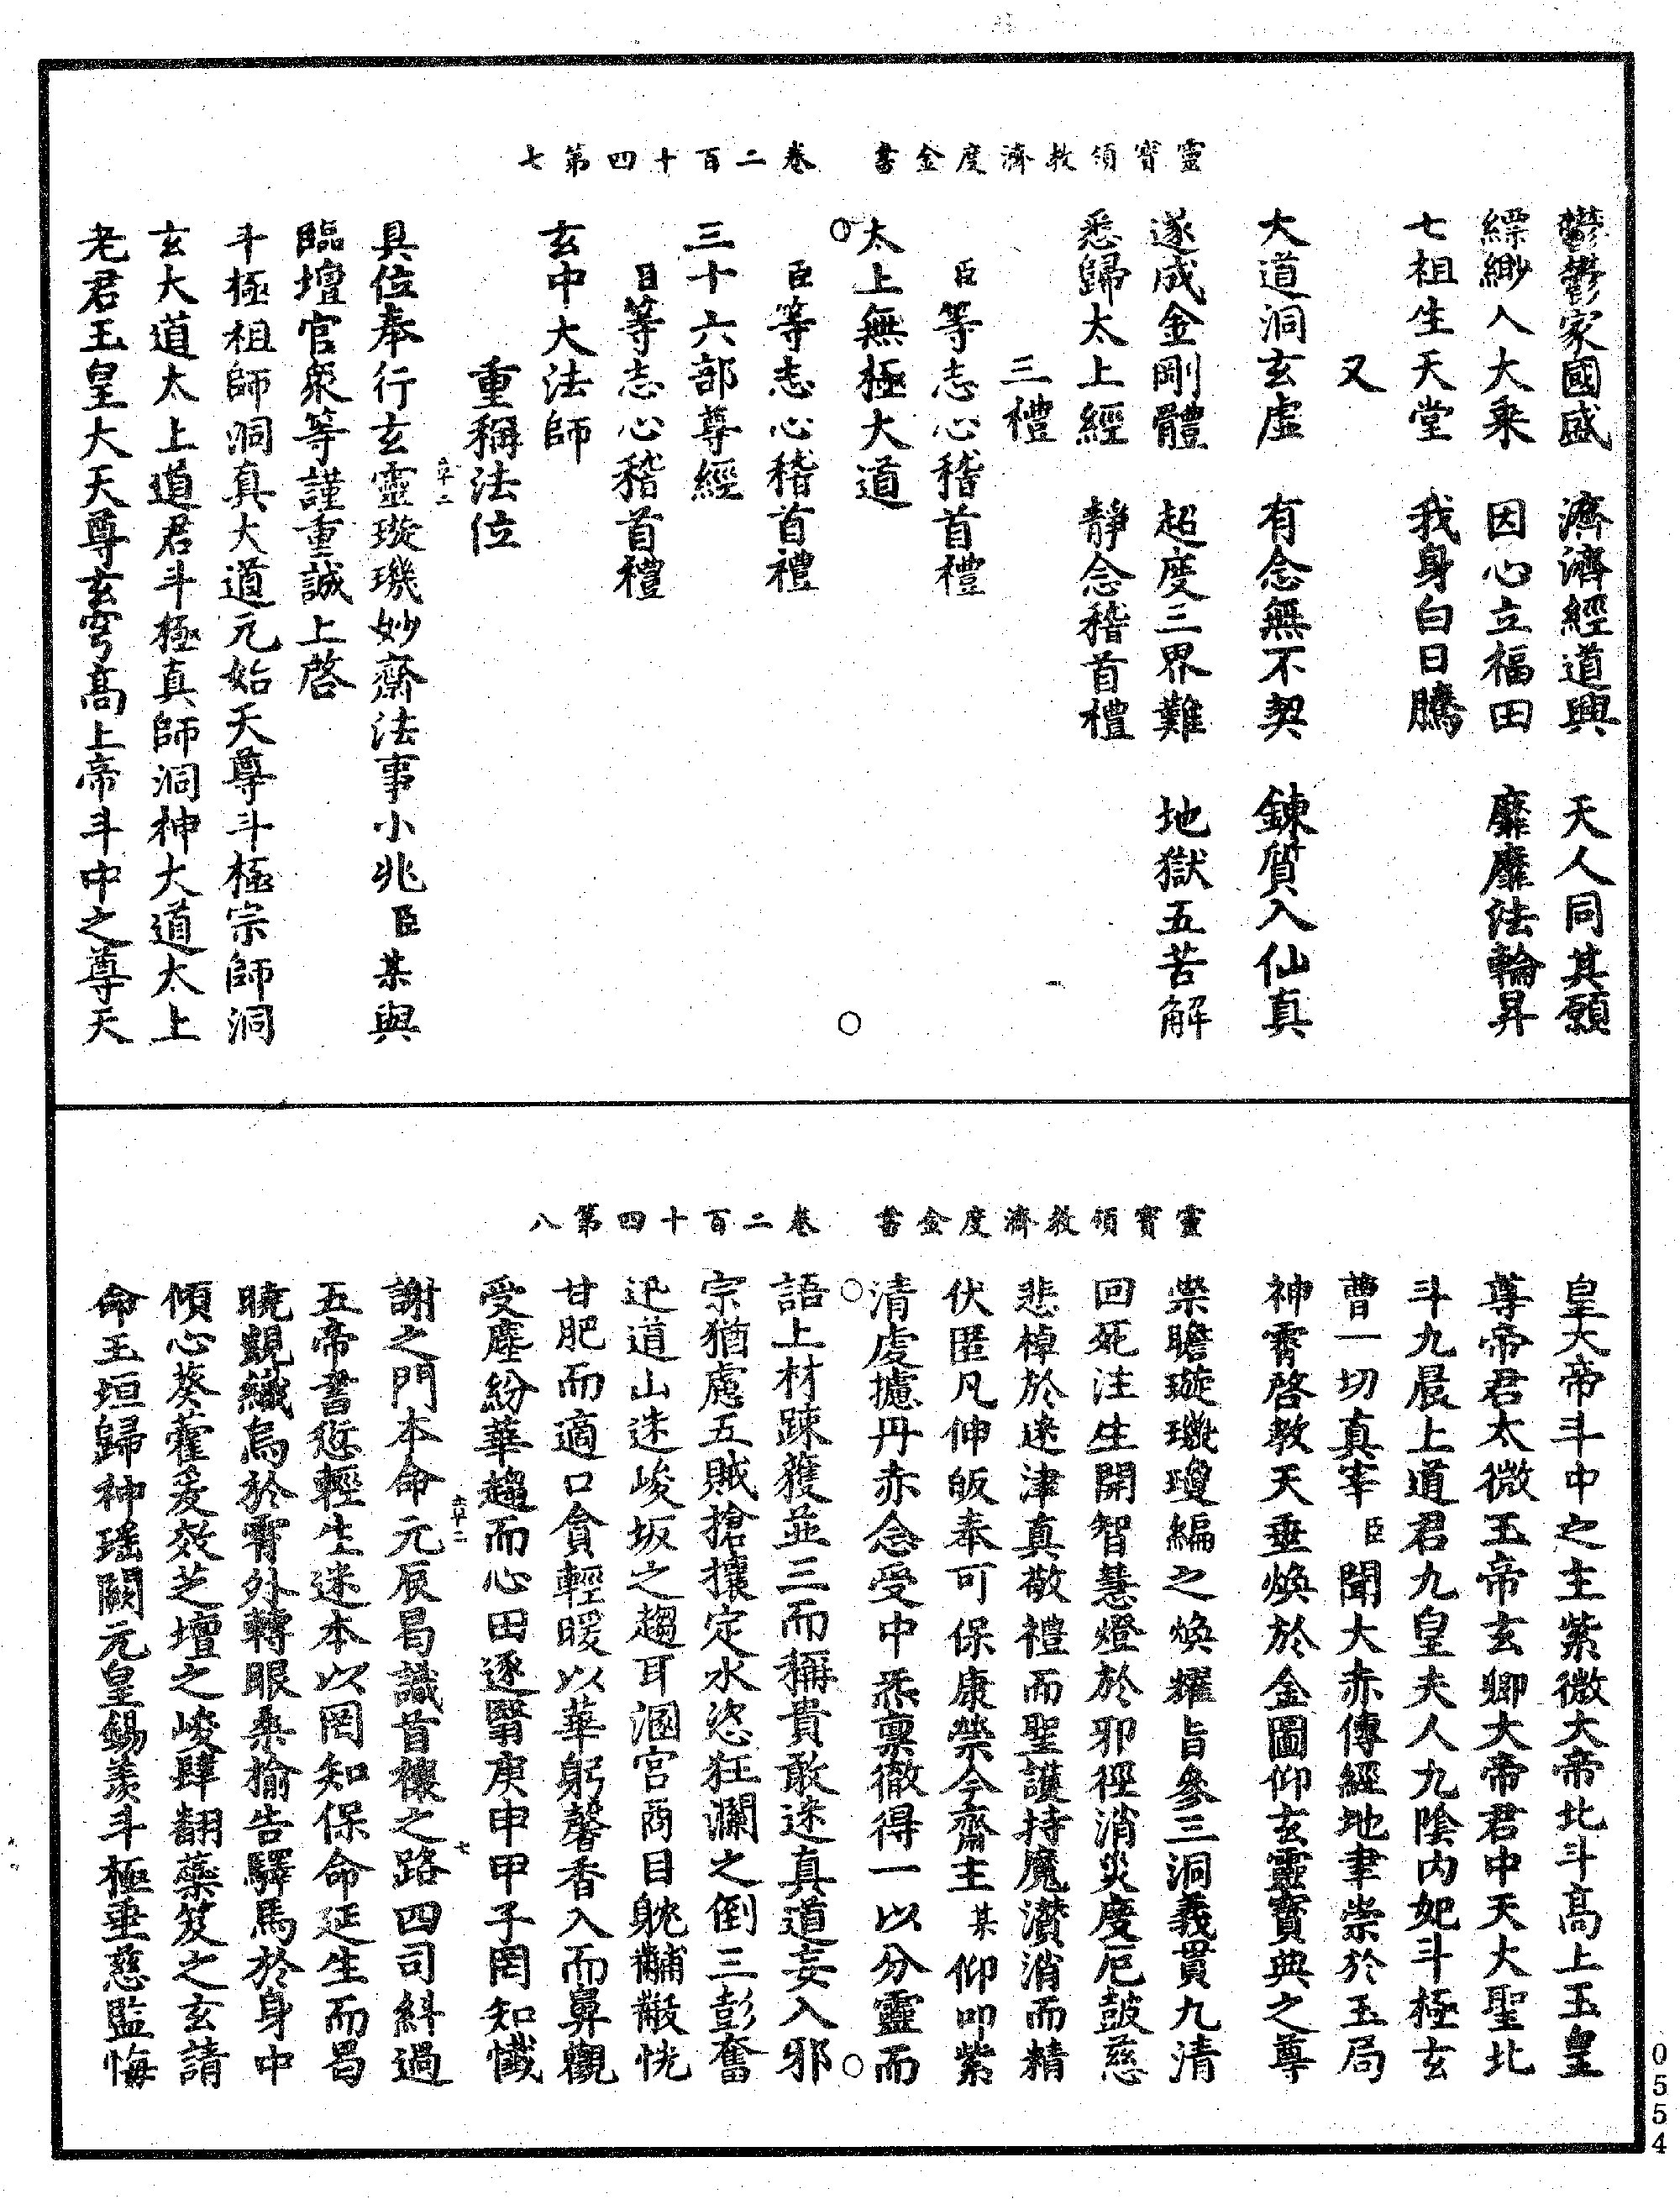 靈寶領教濟度金書　卷二百十四第七
鬱鬱家國盛　濟濟經道興　天人同其願
縹緲入大乘　因心立福田　靡靡法輪昇
七祖生天堂　我身白日騰
又
大道洞玄虛　有念無不契　鍊質入仙真
遂成金剛體　超度三界難　地獄五苦解
悉歸太上經　靜念稽首禮
三禮
臣等志心稽首禮
太上無極大道
臣等志心稽首禮
三十六部尊經
臣等志心稽首禮
玄中大法師
重稱法位
具位奉行玄靈璇璣妙齋法事小兆臣某與
臨壇官眾等謹重誠上啓
斗極祖師洞真大道元始天尊斗極宗師洞
玄大道太上道君斗極真師洞神大道太上
老君玉皇大天尊玄穹高上帝斗中之尊天
靈寶領教濟度金書　卷二百十四第八
皇大帝斗中之主紫微大帝北斗高上玉皇
尊帝君太微玉帝玄卿大帝君中天大聖北
斗九晨上道君九皇夫人九陰内妃斗極玄
曹一切真宰臣聞大赤傳經地聿崇於玉局
神霄啓教天垂煥於金圖仰玄靈寶典之尊
崇瞻璇璣瓊編之煥耀旨參三洞義貫九清
回死注生開智慧燈於邪徑消災度厄鼓慈
悲棹於迷津真敬禮而聖護持魔潛消而精
伏匿凡伸皈奉可保康榮今齋主某仰叩紫
清虔攄丹赤念受中炁稟徹得一以分靈而
語上材踈獲並三而稱貴敢迷真道妄入邪
宗猶處五賊搶攘定水恣狂瀾之倒三彭奮
迅道山迷峻坂之趨耳溷宮商目躭黼黻恍
甘肥而適口貪輕暖以華躬馨香入而鼻觀
受塵紛華趨而心田逐翳庚申甲子罔知懺
謝之門本命元辰曷識首禳之路四司糾過
五帝書愆輕生迷本以罔知保命延生而曷
曉覬織烏於霄外轉眼桑揄告驛馬於身中
傾心葵藿爰叕芝壇之峻肆翻蘂笈之玄請
命玉垣歸神瑤闕元皇錫羨斗極垂慈監悔
0554